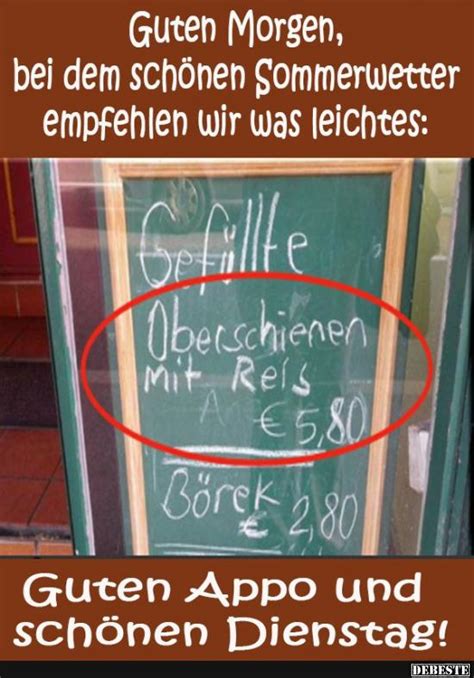 Guten Morgen,
bei dem schönen Sommerwetter
empfehlen wir was leichtes:
Gefüllte
Oberschienen
mit Reis
€ 5,80
Börek
€ 2,80
Guten Appo und
schönen Dienstag!
DEBESTE